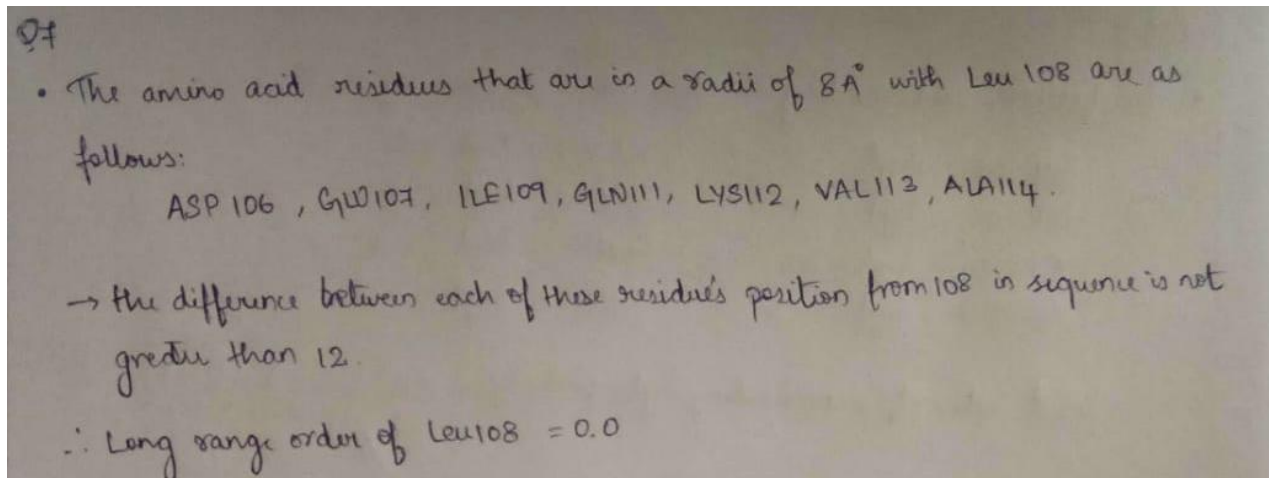 Q7
• The amino acid residues that are in a radii of 8A° with Leu 108 are as
follows:
ASP 106, GLU107, ILE109, GLN111, LYS112, VAL113, ALA114.
→ the difference between each of these residue's position from 108 in sequence is not
greater than 12.
∴ Long range order of Leu108 = 0.0